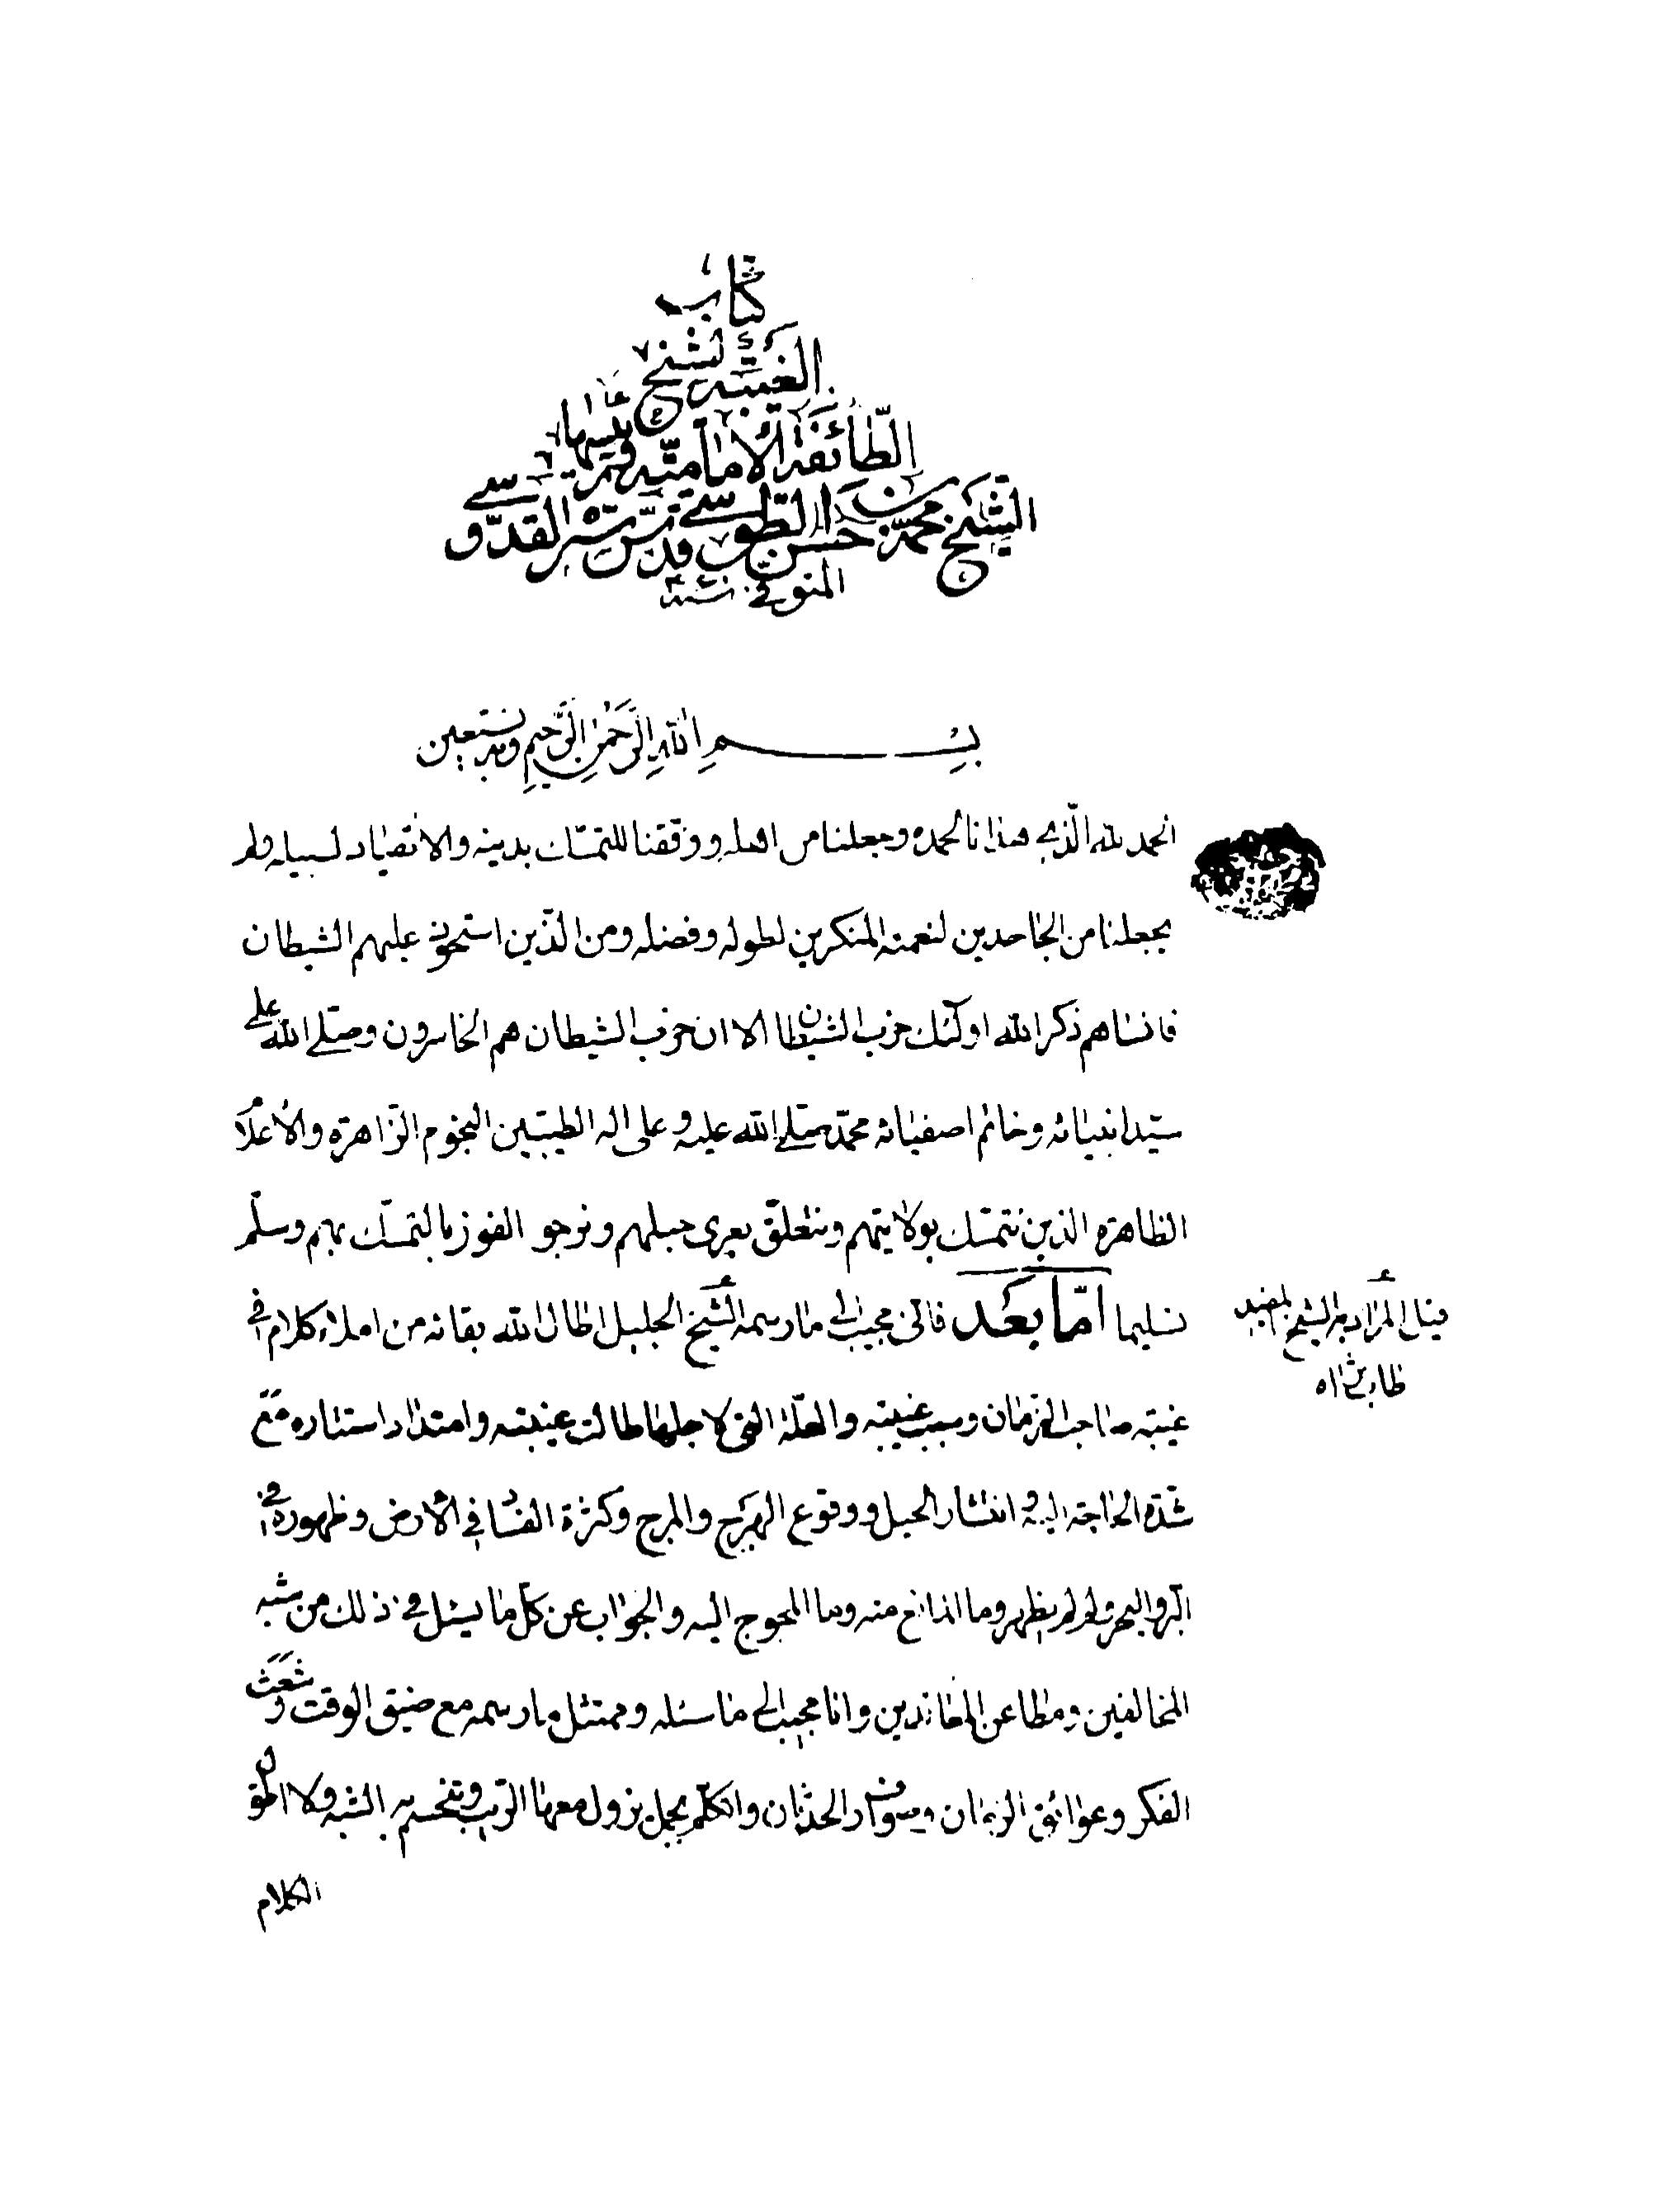 كتاب
الغيبة لشيخ
الطائفة الإمامية ورئيسها
الشيخ محمد بن حسن الطوسي قدس سره القدوسي
المتوفى سنة ٤٦٠
بسم الله الرحمن الرحيم وبه نستعين
الحمد لله الذي هدانا لحمده وجعلنا من اهله ووفقنا للتمسك بدينه والانقياد لسبيله ولم
يجعلنا من الجاحدين لنعمته المنكرين لطوله وفضله ومن الذين استحوذ عليهم الشيطان
فانساهم ذكر الله اولئك حزب الشيطان الا ان حزب الشيطان هم الخاسرون وصلى الله على
سيد انبيائه وخاتم اصفيائه محمد صلى الله عليه وعلى اله الطيبين النجوم الزاهرة والاعلام
الظاهرة الذين نتمسك بولايتهم ونتعلق بعرى حبلهم ونرجو الفوز بالتمسك بهم وسلم
تسليما امّا بَعَد فانى مجيب الى ما رسمه الشيخ الجليل اطال الله بقائه من املاء كلام في
غيبة صاحب الزمان وسبب غيبته والعلة التى لاجلها طالت غيبته وامتداد استتاره مع
شدة الحاجة اليه وانتشار الحيل ووقوع الهرج والمرج وكثرة الفساد في الارض وظهوره في
البر والبحر ولم لم يظهر وما المانع منه وما المحوج اليه والجواب عن كل ما يسئل في ذلك من شبه
المخالفين ومطاعن المعاندين وانا مجيب الى ما سئله وممتثل ما رسمه مع ضيق الوقت وشعث
الفكر وعوائق الزمان وصوارف الحدثان واتكلم بجمل يزول معها الريب وتنحسم به الشبه ولا اطول
الكلام
قيل المراد به الشيخ المفيد
طاب ثراه